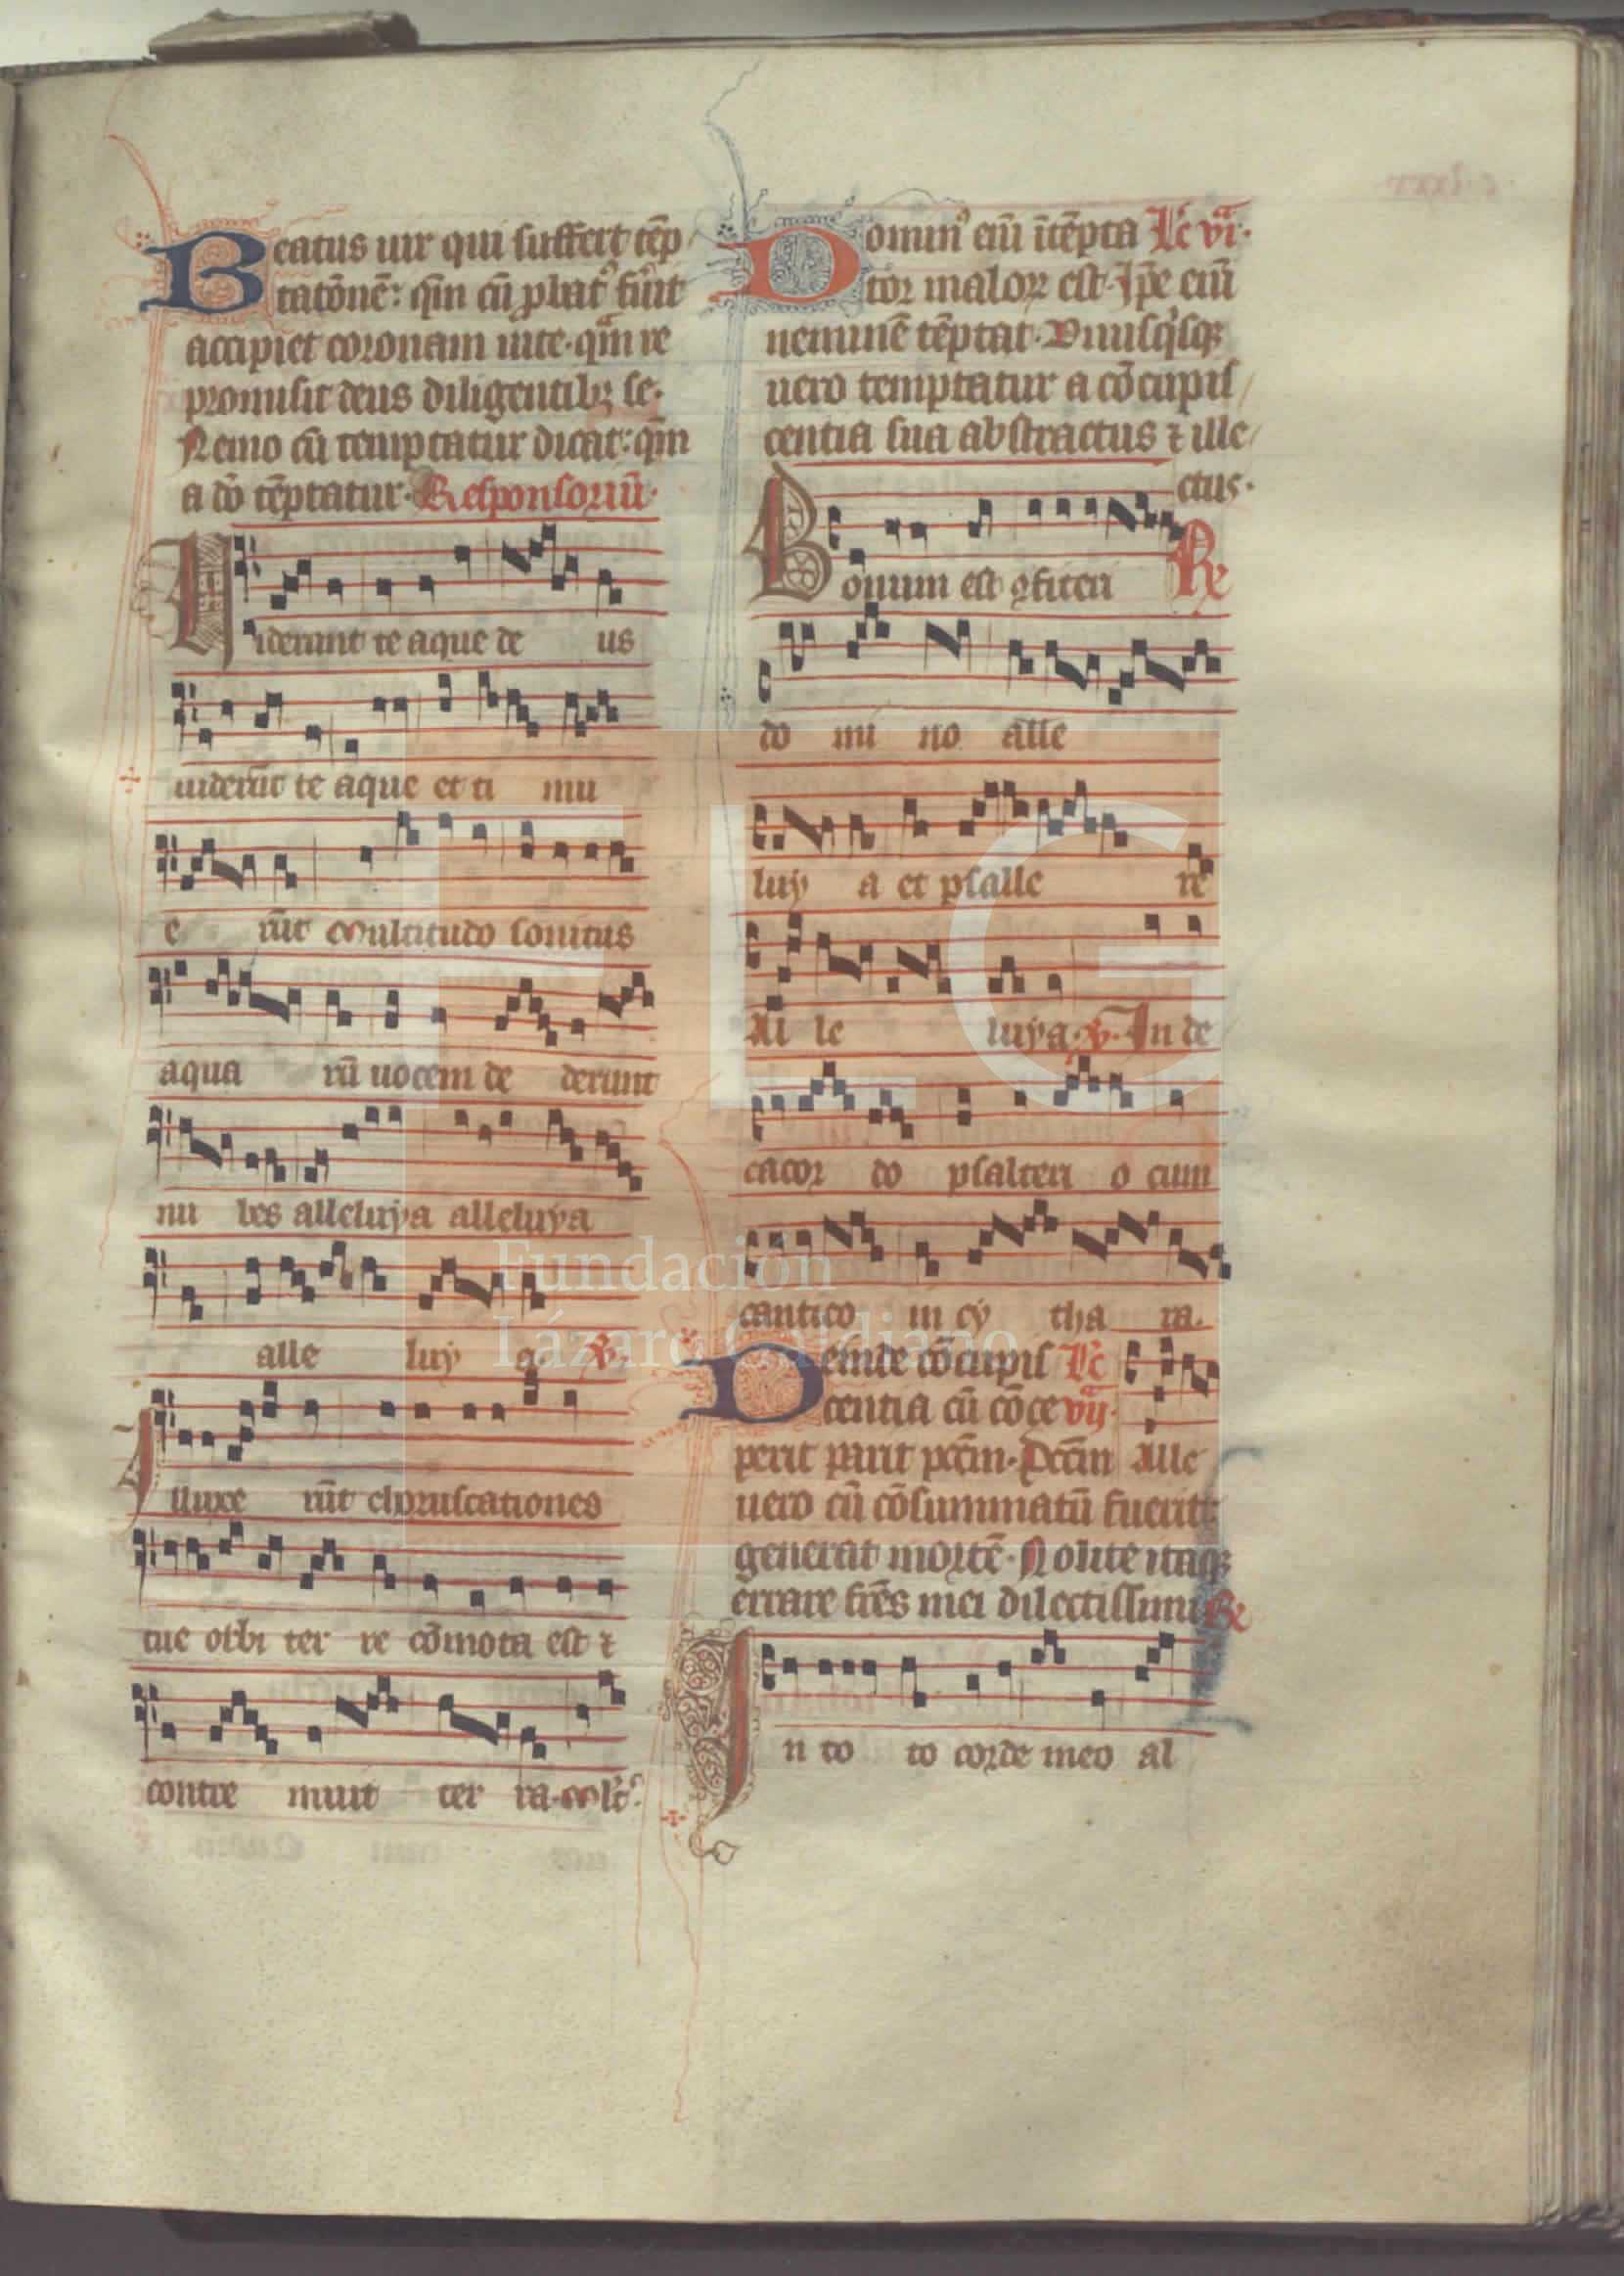 Beatus uir qui suffert tēp
tatōnē: qm̄ cū ꝓbatꝰ fūit
accipiet coronam uite. qm̄ re
promisit deus diligentibꝫ se.
Nemo cū temptatur dicat: qm̄
a dō tēptatur. Responsoriū.
Uiderunt te aque de us
uiderūt te aque et ti mu
e rūt multitudo sonitus
aqua rū uocem de derunt
nu bes alleluya alleluya
alle luy a. ℣.
Illuxe rūt choruscationes
tue orbi ter re cōmota est ⁊
contre muit ter ra. mlt.
Dominꝰ eiū ītēpta Lc̄ vi.
tor maloꝝ est. Ip̄e eiū
neminē tēptat. Vnusqisqꝫ
uero temptatur a cōcupis
centia sua abstractus ⁊ ille
ctus.
Bonum est ꝯfiteri ℟
do mi no alle
luy a et psalle re
Al le luya. ℣. In de
cacor do psalteri o cum
cantico in cy tha ra.
Deinde cōcupis Lc̄
centia cū cōce vij.
perit parit pctm̄. Pctm̄ Alle
uero cū cōsummatū fuerit:
generat mortē. Nolite itaqꝫ
errare frēs mei dilectissimi ℟
In to to corde meo al
c lxxx
FLG
Fundación
Lázaro Galdiano